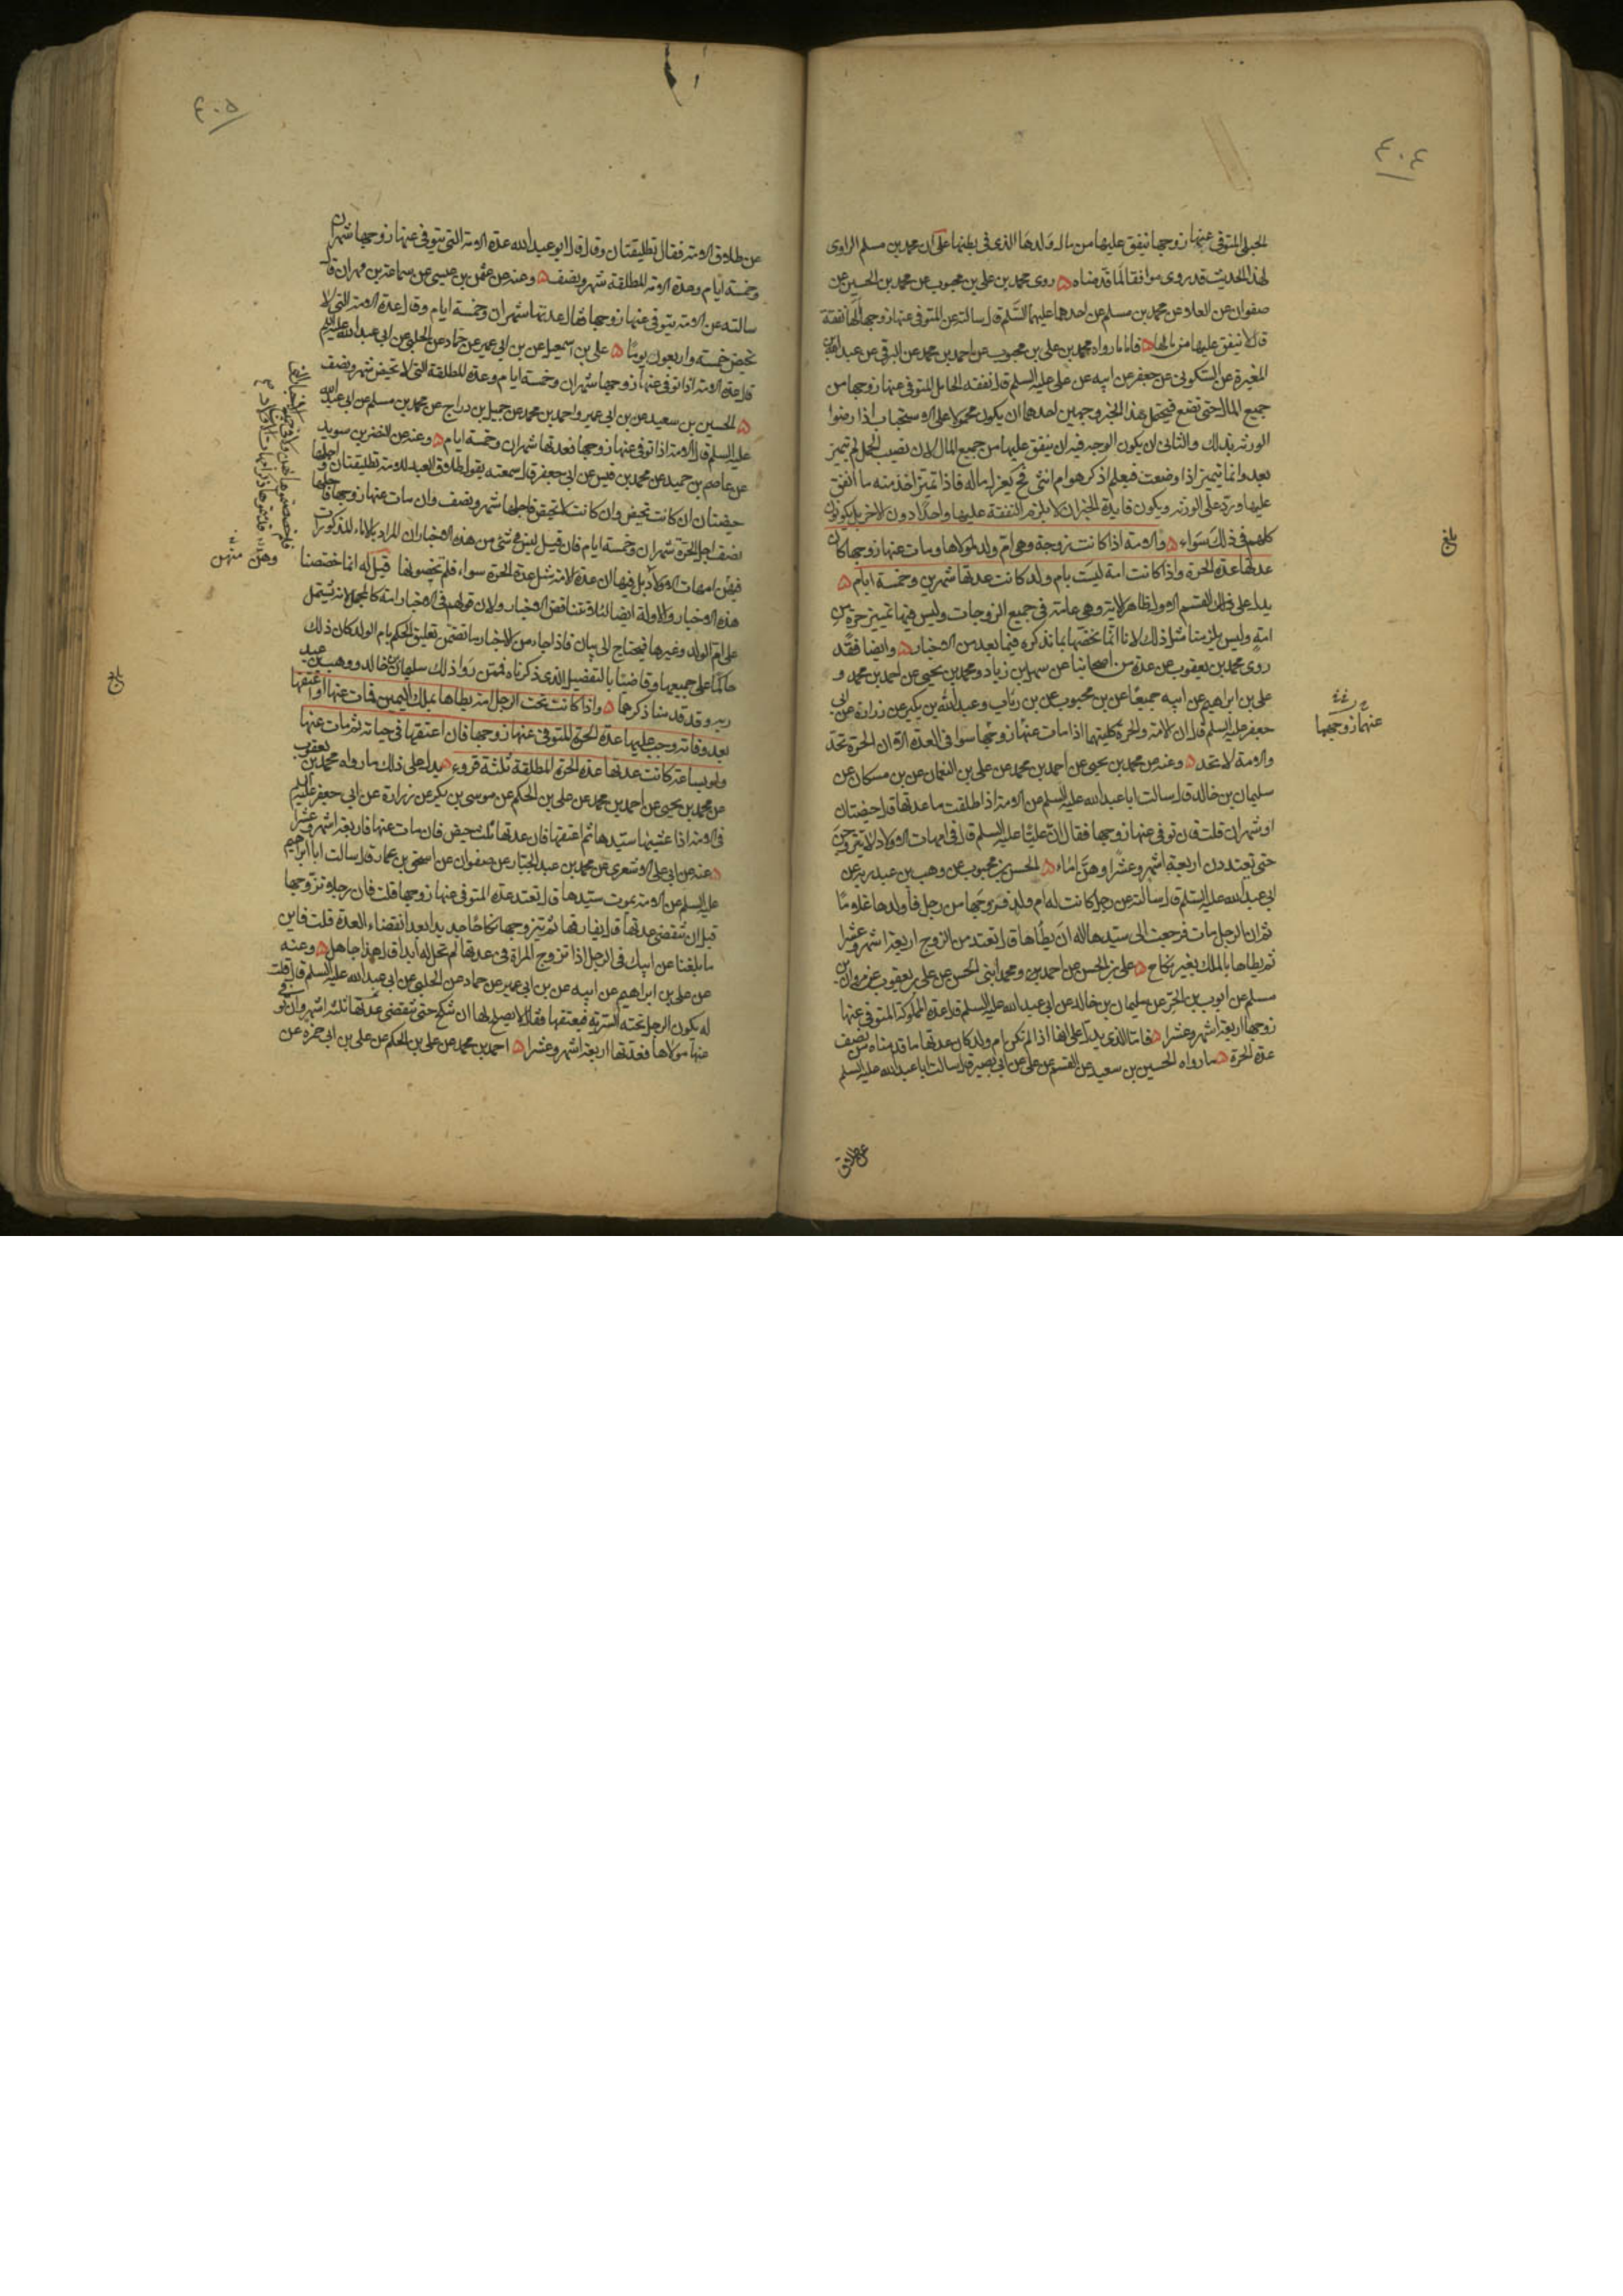 ٤٠٤
الحبلى المتوفى عنها زوجها ينفق عليها من مال ولدها الذى فى بطنها على ان محمد بن مسلم الراوى
لهذا الحديث قد روى موافقا لما قدمناه ۵ روى محمد بن على بن محبوب عن محمد بن الحسين عن
صفوان عن العلا عن محمد بن مسلم عن احدهما عليهما السلم قال سالته عن المتوفى عنها زوجها الها نفقة
قال لا ينفق عليها من مالها ۵ فاما ما رواه محمد بن على بن محبوب عن احمد بن محمد عن البرقى عن عبد الله بن
المغيرة عن السكونى عن جعفر عن ابيه عن على عليه السلم قال نفقه الحامل المتوفى عنها زوجها من
جميع المال حتى تضع فيحتمل هذا الخبر وجهين احدهما ان يكون محمولا على الاستحباب اذا رضوا
الورثه بذلك والثانى ان يكون الوجه فيه ان ينفق عليها من جميع المال لان نصيب الحمل لم يتميز
بعد وانما يتميز اذا وضعت فيعلم اذكر هو ام انثى فح يعزل ماله فاذا تميز اخذ منه ما انفق
عليها ورد على الورثه ويكون فايدة الخبر ان لا يلزم النفقة عليها واحدا دون الاخر بل يكونون
كلهم فى ذلك سواء ۵ والامة اذا كانت زوجة وهى ام ولد لمولاها ومات عنها زوجها كان
عدتها عدة الحرة واذا كانت امة ليست بام ولد كانت عدتها شهرين وخمسة ايام ۵
يدل على ذلك القسم الاول ظاهر الايتر وهى عامة فى جميع الزوجات وليس فيها تمييز حرة من
امة وليس يلزمنا مثل ذلك لانا انما نخصها بما نذكره فيما بعد من الاخبار ۵ وايضا فقد
روى محمد بن يعقوب عن عدة من اصحابنا عن سهل بن زياد ومحمد بن يحيى عن احمد بن محمد و
على بن ابراهيم عن ابيه جميعا عن بن محبوب عن بن رئاب وعبد الله بن بكير عن زرارة عن ابى
جعفر عليه السلم قال ان الامة والحرة كلتيهما اذا مات عنها زوجها سوا فى العدة الا ان الحرة تحد
والامة لا تحد ۵ وعنه عن محمد بن يحيى عن احمد بن محمد عن على بن النعمان عن بن مسكان عن
سليمان بن خالد قال سالت ابا عبد الله عليه السلم عن الامة اذا طلقت ما عدتها قال حيضتان
او شهران قلت فان توفى عنها زوجها فقال ان عليا عليه السلم قال فى امهات الاولاد لا يتزوجن
حتى يعتددن اربعة اشهر وعشرا وهن اماء ۵ الحسن بن محبوب عن وهب بن عبد ربه عن
ابى عبد الله عليه السلم قال سالته عن رجل كانت له ام ولد فزوجها من رجل فاولدها غلاما
ثم ان الرجل مات فرجعت الى سيدها اله ان يطاها قال تعتد من الزوج اربعة اشهر وعشرا
ثم يطاها بالملك بغير نكاح ۵ على بن الحسن عن احمد ومحمد ابنى الحسن عن على بن يعقوب عن مروان بن
مسلم عن ايوب بن الحر عن سليمان بن خالد عن ابى عبد الله عليه السلم قال عدة المملوكة المتوفى عنها
زوجها اربعة اشهر وعشرا ۵ فاما الذى يدل على انها اذا لم تكن ام ولد كان عدتها ما قدمناه من نصف
عدة الحرة ۵ ما رواه الحسين بن سعيد عن القسم عن على عن ابى بصير قال سالت ابا عبد الله عليه السلم
عن طلاق
بلغ
عنها زوجها
٤٠٥
عن طلاق الامة فقال تطليقتان وقال قال ابو عبد الله عدة الامة التى يتوفى عنها زوجها شهران
وخمسة ايام وعدة الامة المطلقة شهر ونصف ۵ وعنه عن عثمن بن عيسى عن سماعة بن مهران قال
سالته عن الامة يتوفى عنها زوجها فقال عدتها شهران وخمسة ايام وقال عدة الامة التى لا
تحيض خمسة واربعون يوما ۵ على بن اسمعيل عن بن ابى عمير عن حماد عن الحلبى عن ابى عبد الله عليه السلم
قال عدة الامة اذا توفى عنها زوجها شهران وخمسة ايام وعدة المطلقة التى لا تحيض شهر ونصف
۵ الحسين بن سعيد عن بن ابى عمير واحمد بن محمد عن جميل بن دراج عن محمد بن مسلم عن ابى عبد الله
عليه السلم قال الامة اذا توفى عنها زوجها فعدتها شهران وخمسة ايام ۵ وعنه عن النضر بن سويد
عن عاصم بن حميد عن محمد بن قيس عن ابى جعفر قال سمعته يقول طلاق العبد للامة تطليقتان واجلها
حيضتان ان كانت تحيض وان كانت لا تحيض فاجلها شهر ونصف وان مات عنها زوجها فاجلها
نصف اجل الحرة شهران وخمسة ايام فان قيل ليس فى شئ من هذه الاخبار ان المراد بالاماء المذكورات
فيهن امهات الاولاد بل فيها ان عدة الامة مثل عدة الحرة سواء فلم تخصونها قيل له انما خصصنا
هذه الاخبار والاولة ايضا لئلا تتناقض الاخبار ولان قولهم فى الاخبار امة كالمجمل لانه يشتمل
على ام الولد وغيرها فيحتاج الى بيان فاذا جاء من الاخبار ما تضمن تعليق الحكم بام الولد كان ذلك
حاكما على جميعها وقاضيا بالتفصيل الذى ذكرناه فممن روا ذلك سليمان بن خالد ووهب بن عبد
ربه وقد قدمنا ذكرهما ۵ واذا كانت تحت الرجل امة يطاها بملك اليمين فمات عنها او اعتقها
بعد وفاته وجب عليها عدة الحرة المتوفى عنها زوجها فان اعتقها فى حياته ثم مات عنها
ولو بساعة كانت عدتها عدة الحرة المطلقة ثلثة قروء ۵ يدل على ذلك ما رواه محمد بن يعقوب
عن محمد بن يحيى عن احمد بن محمد عن على بن الحكم عن موسى بن بكر عن زرارة عن ابى جعفر عليه السلم
فى الامة اذا غشيها سيدها ثم اعتقها فان عدتها ثلث حيض فان مات عنها فاربعة اشهر وعشرا
۵ عنه عن ابى على الاشعرى عن محمد بن عبد الجبار عن صفوان عن اسحق بن عمار قال سالت ابا ابراهيم
عليه السلم عن الامة يموت سيدها قال تعتد عدة المتوفى عنها زوجها قلت فان رجلا تزوجها
قبل ان تنقضى عدتها قال يفارقها ثم يتزوجها نكاحا جديدا بعد انقضاء العدة قلت فاين
ما بلغنا عن ابيك فى الرجل اذا تزوج المراة فى عدتها لم تحل له ابدا قال هذا جاهل ۵ وعنه
عن على بن ابراهيم عن ابيه عن بن ابى عمير عن حماد عن الحلبى عن ابى عبد الله عليه السلم قال قلت
له يكون الرجل تحته السرية فيعتقها فقال لا يصلح لها ان تنكح حتى تنقضى عدتها ثلثة اشهر وان توفى
عنها مولاها فعدتها اربعة اشهر وعشرا ۵ احمد بن محمد عن على بن الحكم عن على بن ابى حمزة عن
بلغ